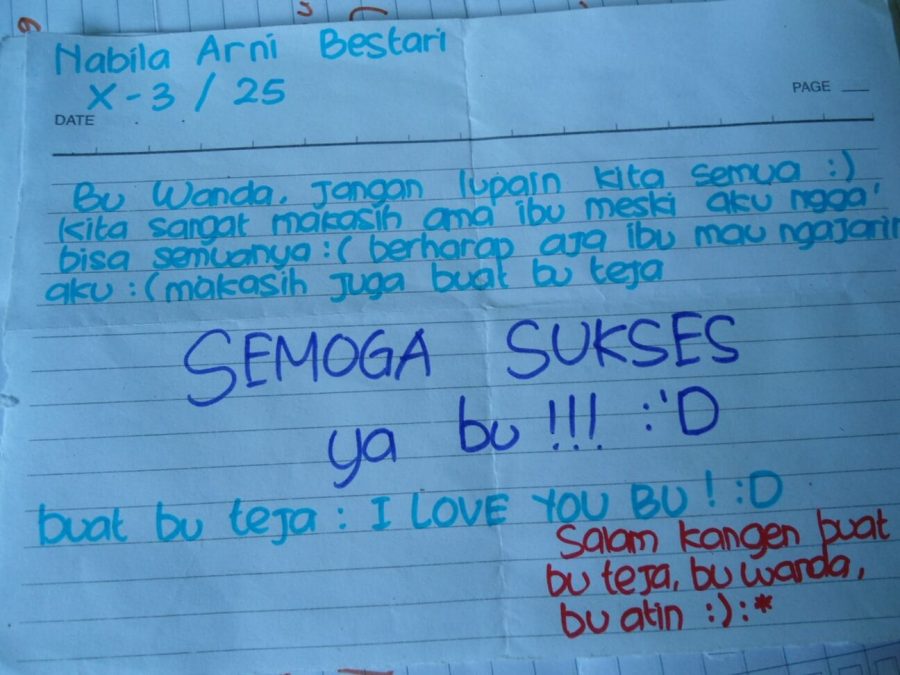 Nabila Arni Bestari
X-3 / 25
PAGE
DATE
Bu Wanda, jangan lupain kita semua :)
kita sangat makasih ama ibu meski aku ngga'
bisa semuanya :( berharap aja ibu mau ngajarin
aku :( makasih juga buat bu teja
SEMOGA SUKSES
ya bu !!! :'D
buat bu teja : I LOVE YOU BU ! :D
Salam kangen buat
bu teja, bu wanda,
bu atin :) :*